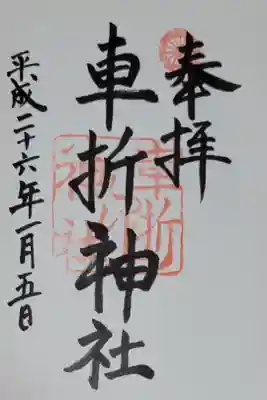 奉拝
車折神社
平成二十六年一月五日